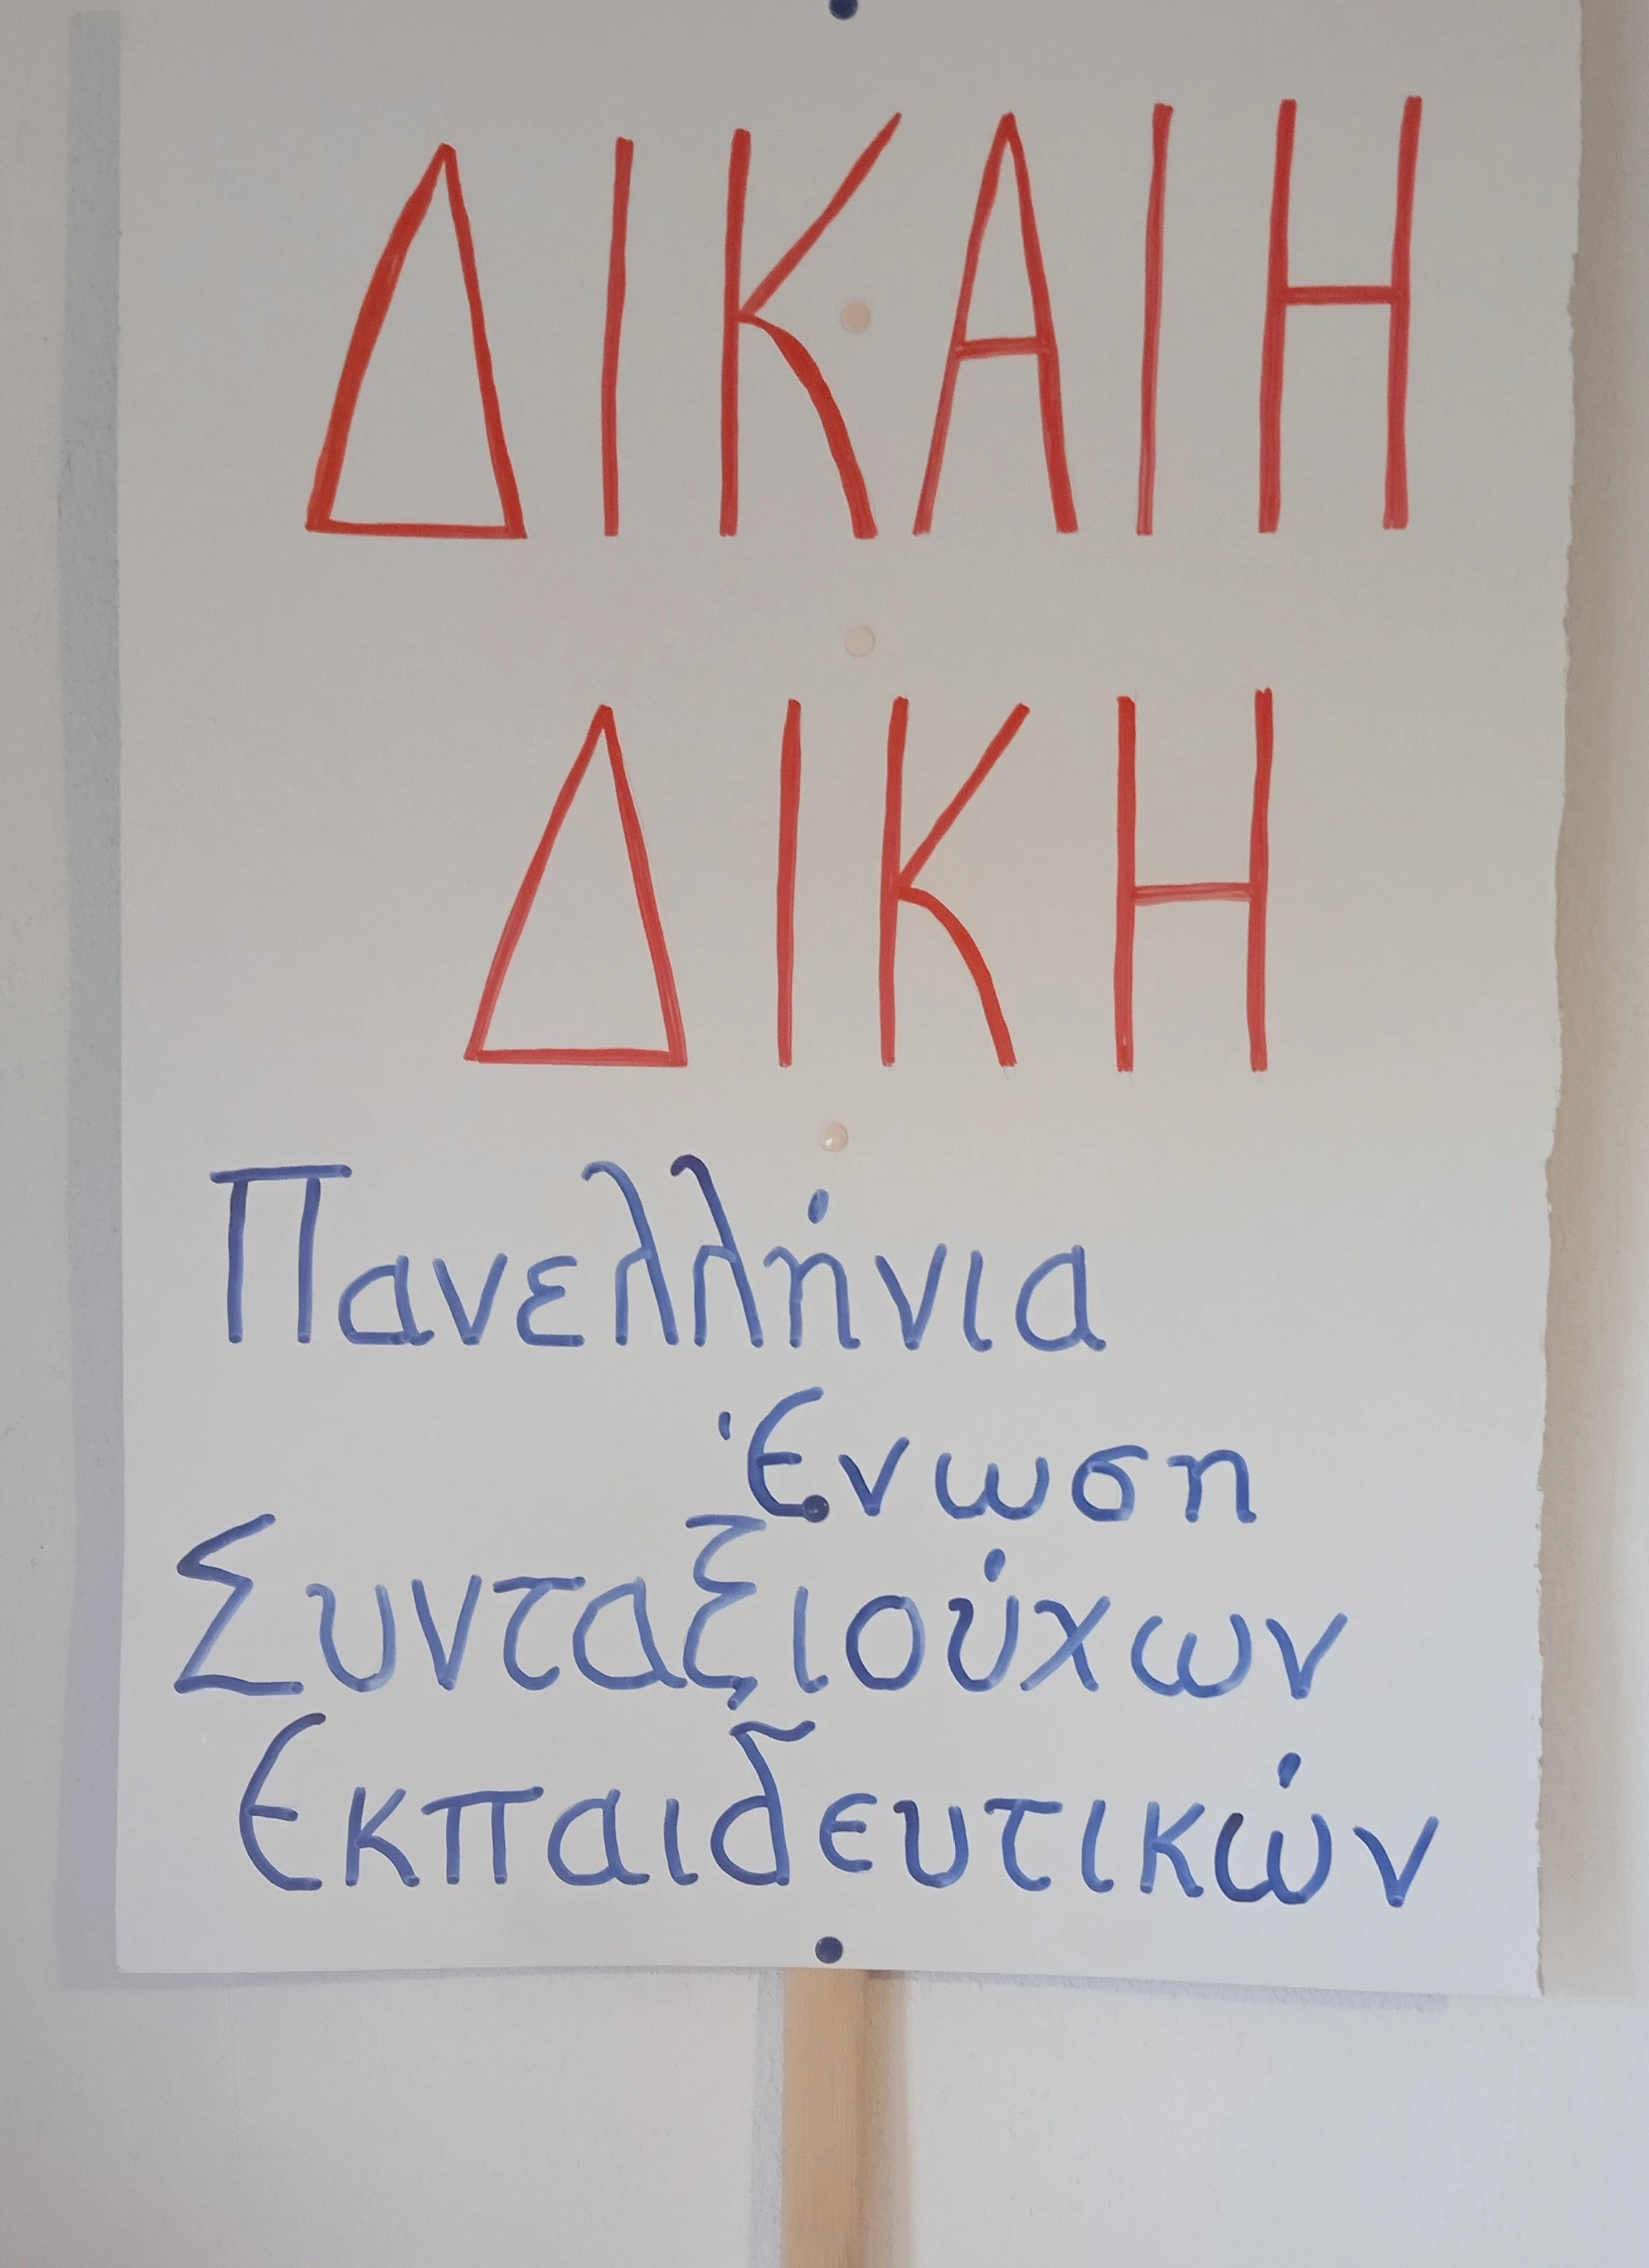 ΔΙΚΑΙΗ
ΔΙΚΗ
Πανελλήνια
Ένωση
Συνταξιούχων
Εκπαιδευτικών